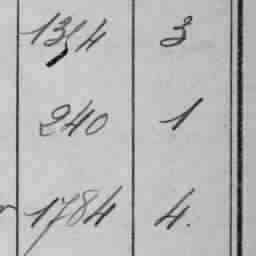 1354 3
240 1
1784 4.